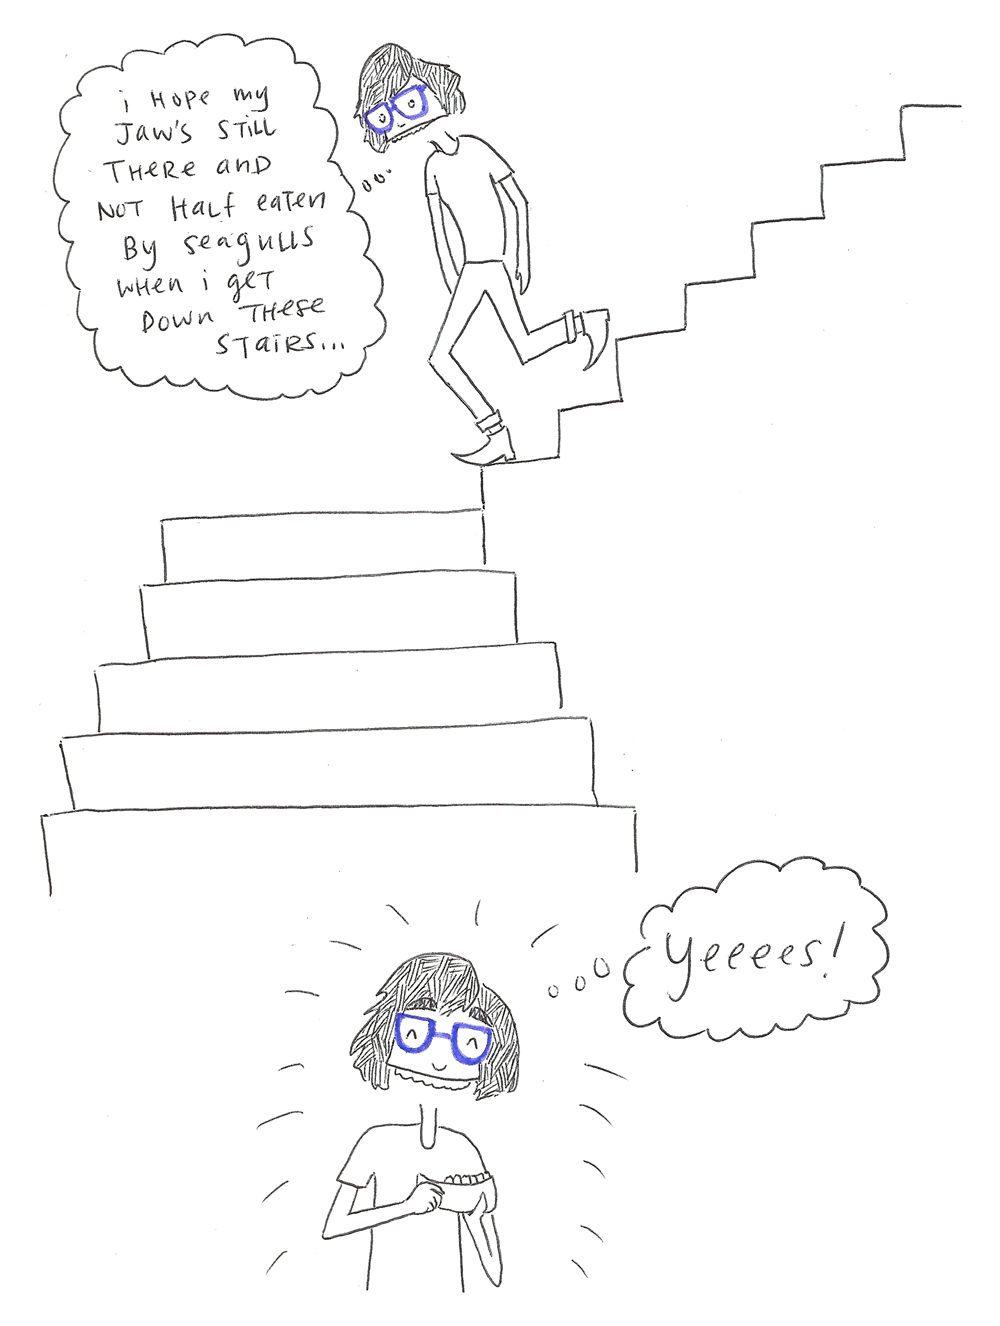 i Hope my
Jaw's STiLL
THeRe anD
NOT HaLf eaTen
By seagulls
WHen i geT
Down THese
STaiRs...
yeeees!